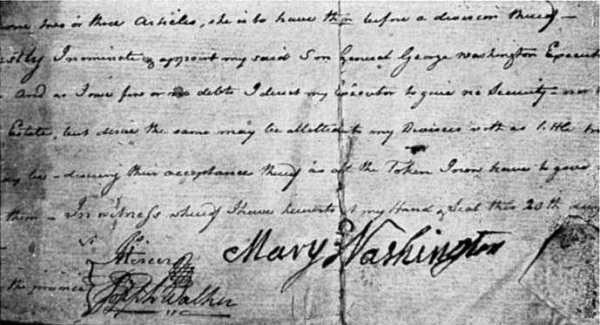 two or three Articles, she is to have them before a division thereof —
I nominate & appoint my said Son General George Washington Execut
And as I owe few or no debts I direct my Executor to give no Security — nor
Estate, but desire the same may be allotted to my Devisees with as little
be — desiring their acceptance thereof as all the Token I now have to give
them — In witness whereof I have hereunto set my Hand & Seal this 20th
Mary Washington
Js. Mercer
Joseph Walker